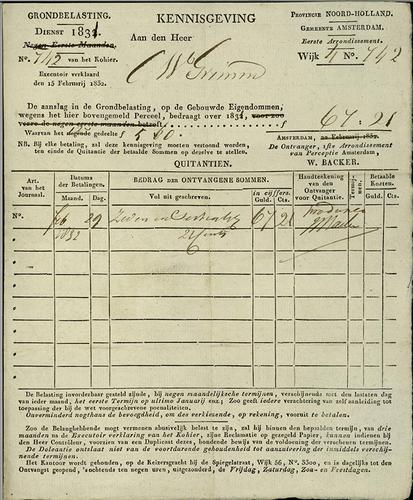 GRONDBELASTING.
DIENST 183
Negen Eerste Maanden.
No. 742 van het Kohier.
Executoir verklaard
den 15 Februarij 1832.
KENNISGEVING
Aan den Heer
PROVINCIE NOORD-HOLLAND.
GEMEENTE AMSTERDAM.
Eerste Arrondissement.
WIJK 4 No. 742
De aanslag in de Grondbelasting, op de Gebouwde Eigendommen,
wegens het hier bovengemeld Perceel, bedraagt over 183 voor zoo
verre de negen eerste maanden betreft 67:21
Waarvan het gedeelte
NB. Bij elke betaling, zal deze kennisgeving moeten vertoond worden,
ten einde de Quitantie der betaalde Sommen op dezelve te stellen.
AMSTERDAM, 22 Februarij 1832
De Ontvanger, 1ste Arrondissement
van Perceptie Amsterdam,
W. BACKER.
QUITANTIEN.
Art. van het Journaal.
Datum der Betalingen.
Maand. Dag.
BEDRAG DER ONTVANGENE SOMMEN.
Vol uit geschreven.
in cijffers.
Guld. Cts.
Handteekening van den Ontvanger voor Quitantie.
Termijnen.
Betaalde Kosten.
Guld. Cts.
No. feb 29 Zeven en Zestig 67 21
1832 21 Cents
De Belasting invorderbaar gesteld zijnde, bij negen maandelijksche termijnen, verschijnende met den laatsten
dag van ieder maand, het eerste Termijn op ultimo Januarij enz; Zoo geeft iedere verachtering van zelf aanleiding tot
toepassing der bij de wet voorgeschrevene poenaliteiten.
Onverminderd nogthans de bevoegdheid, om des verkiesende, op rekening, vooruit te betalen.
Zoo de Belanghebbende mogt vermenen abusivelijk belast te zijn, zal hij binnen den bepaalden termijn, van drie
maanden na de Executoir verklaring van het Kohier, zijne Reclamatie op gezegeld Papier, kunnen indienen bij
den Heer Controlleur, voorzien van een Duplicaet dezes, houdende bewijs van de voldoening der verschenen termijnen.
De Doleantie ontslaat niet van de voortdurende gehoudenheid tot aanzuivering der inmiddels verder verschijnende termijnen.
Het Kantoor wordt gehouden, op de Keizersgracht bij de Spiegelstraat, Wijk 56, No. 3300, en is dagelijks tot den
Ontvangst geopend, 's ochtends ten negen uren, uitgezonderd, de Vrijdag, Zaturdag, Zon- en Feestdagen.